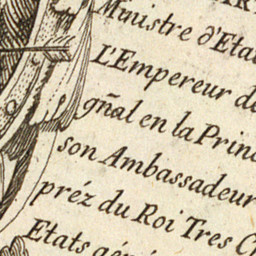 Ministre d'Etat
L'Empereur de
gñal en la Prin
son Ambassadeur
préz du Roi Tres C
Etats gén